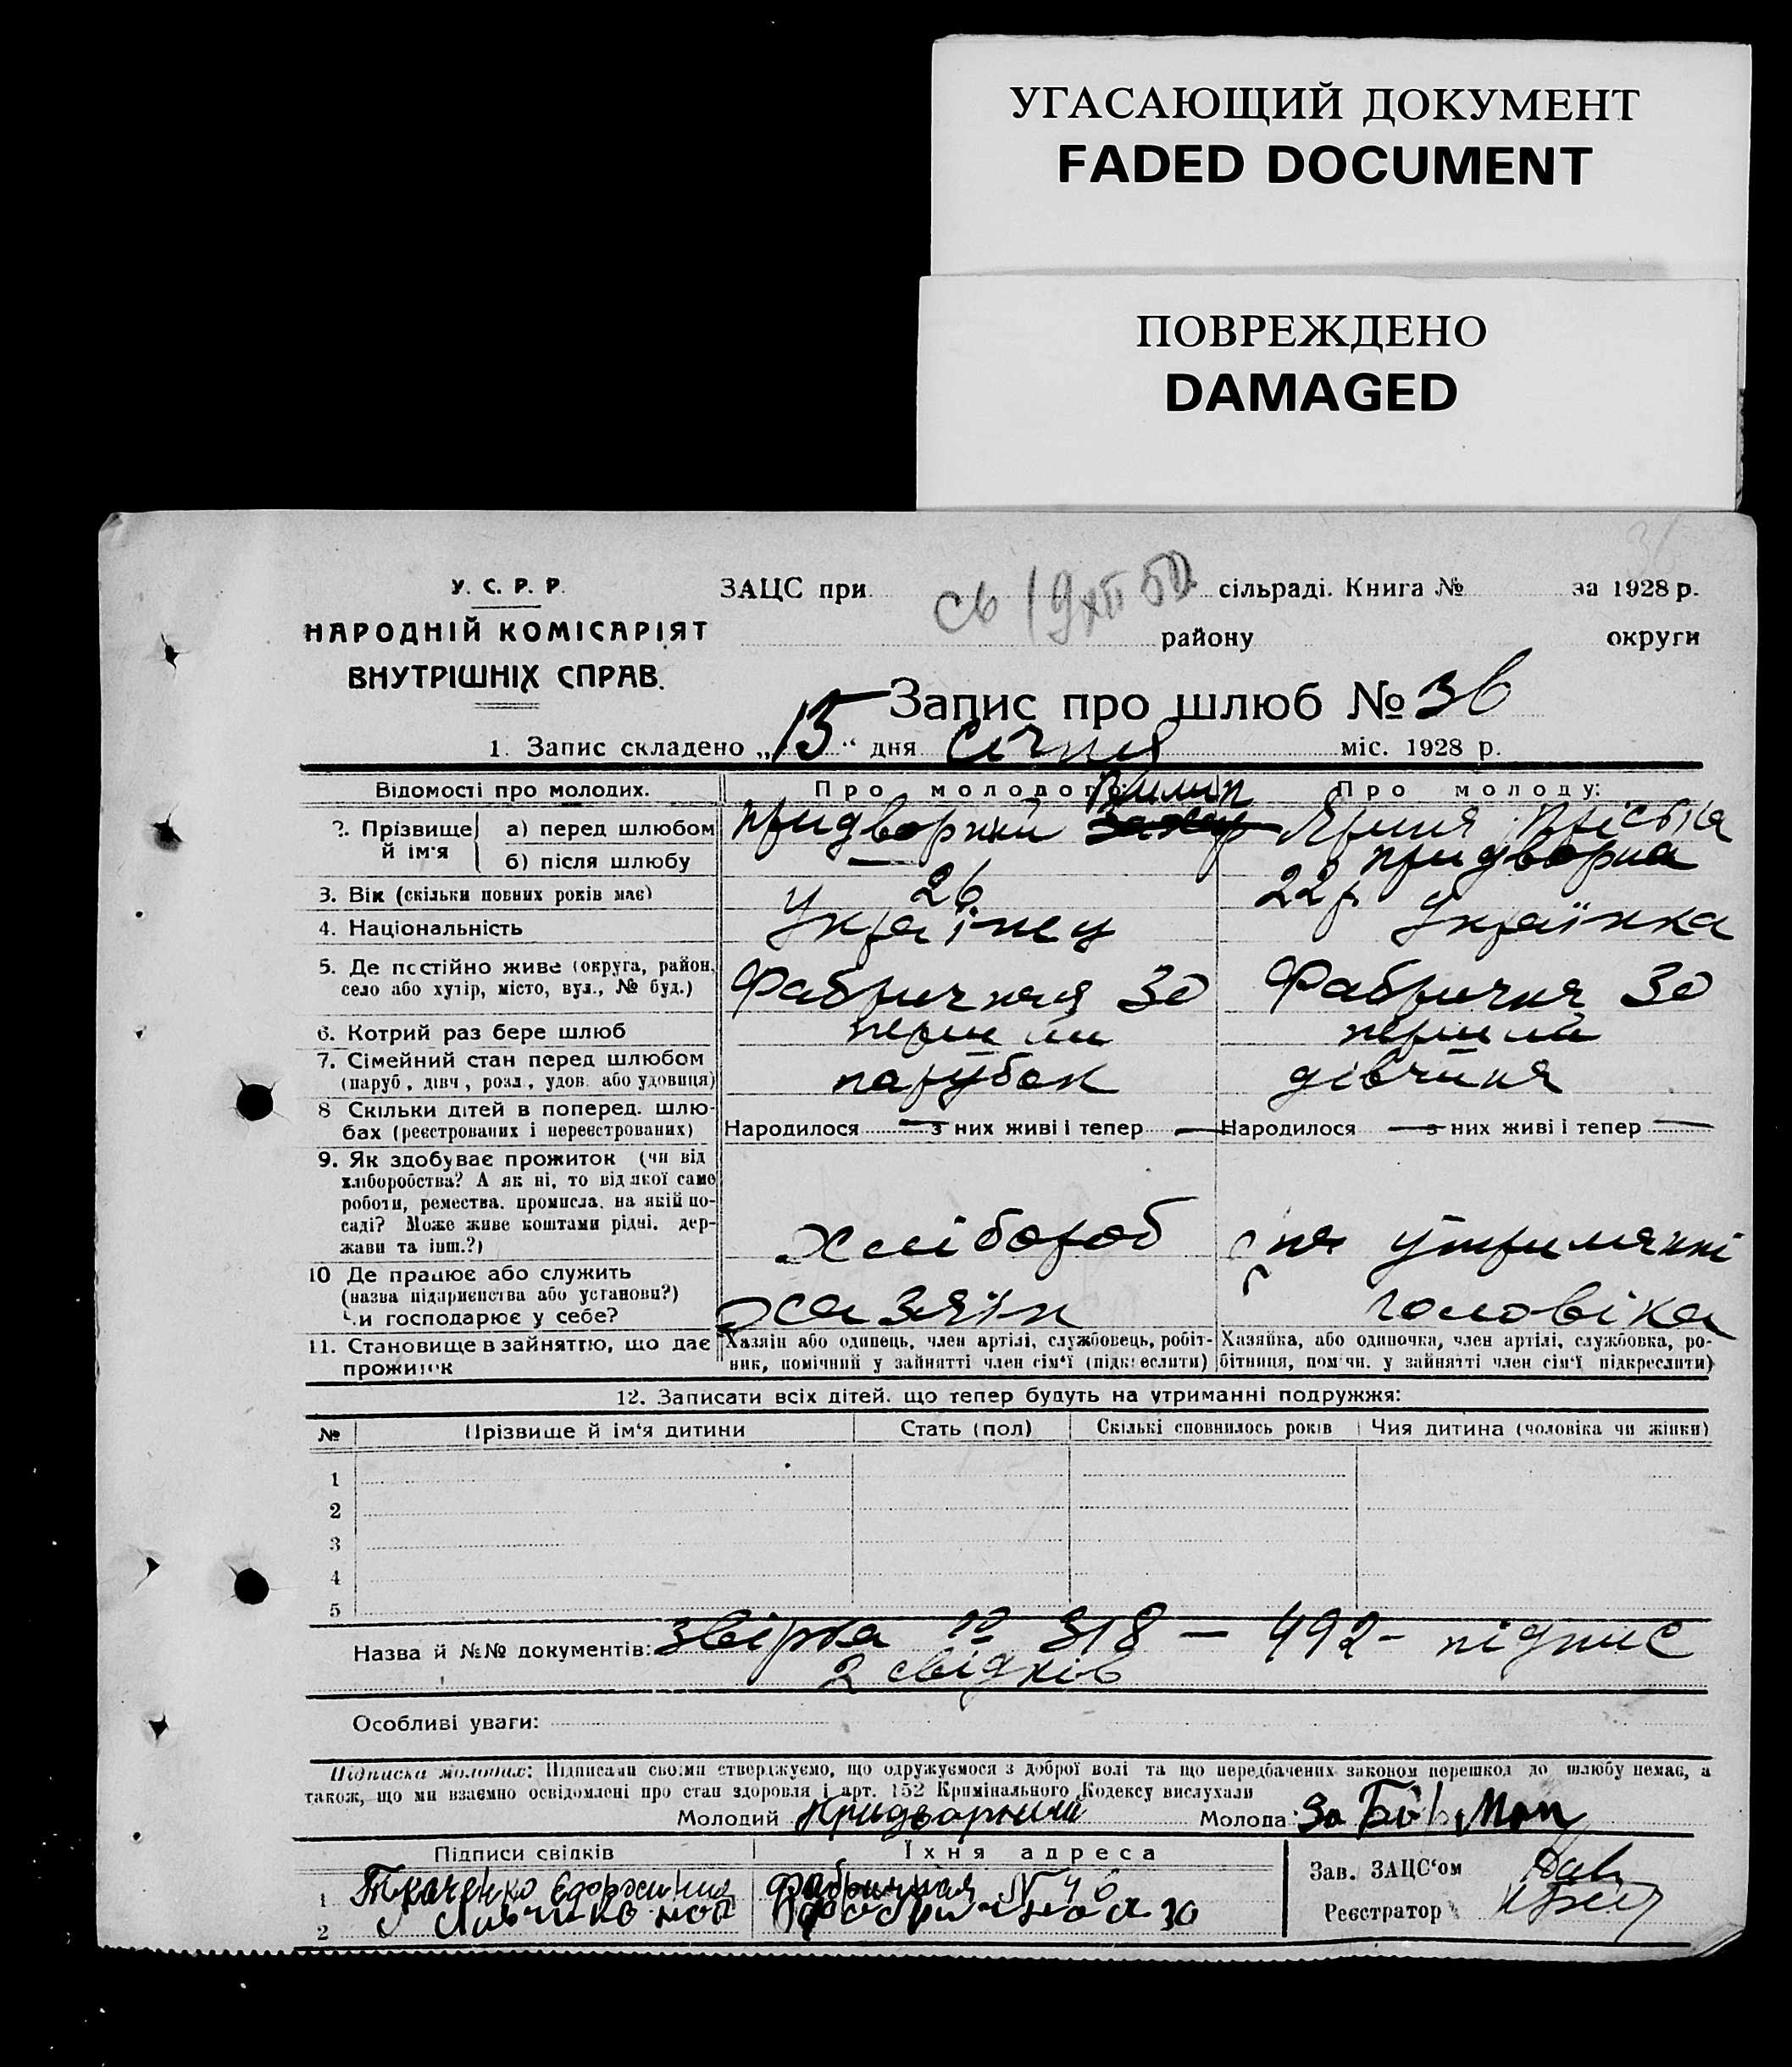 УГАСАЮЩИЙ ДОКУМЕНТ
FADED DOCUMENT
ПОВРЕЖДЕНО
DAMAGED
36
У. С. Р. Р.
НАРОДНІЙ КОМІСАРІЯТ
ВНУТРІШНІХ СПРАВ.
ЗАЦС при сільраді. Книга № за 1928 р.
району округи
Запис про шлюб № 36
1. Запис складено „15“ дня січня міс. 1928 р.
Відомості про молодих. Про молодого: Про молоду:
2. Прізвище й ім'я
а) перед шлюбом Придворний Пилип
б) після шлюбу — Придворна
3. Вік (скільки повних років має) 26 22 р
4. Національність Українец Українка
5. Де постійно живе (округа, район, село або хутір, місто, вул., № буд.) Фабрична 30 Фабрична 30
6. Котрий раз бере шлюб перший перший
7. Сімейний стан перед шлюбом (паруб., дівч., розл., удов. або удовиця) парубок дівчина
8 Скільки дітей в поперед. шлюбах (реєстрованих і нереєстрованих) Народилося — з них живі і тепер — Народилося — з них живі і тепер —
9. Як здобуває прожиток (чи від хліборобства? А як ні, то від якої само роботи, ремества, промисла, на якій посаді? Може живе коштами рідні, держави та інш.?) хлібороб на утриманні
10 Де працює або служить (назва підприємства або установи?) Чи господарює у себе? хазяїн чоловіка
11. Становище в зайняттю, що дає прожиток
Хазяін або одинець, член артілі, службовець, робітник, помічний у зайнятті член сім'ї (підкреслити)
Хазяйка, або одиночка, член артілі, службовка, робітниця, помічн. у зайнятті член сім'ї підкреслити)
12. Записати всіх дітей, що тепер будуть на утриманні подружжя:
№ Прізвище й ім'я дитини Стать (пол) Скількі сповнилось років Чия дитина (чоловіка чи жінки)
1
2
3
4
5
Назва й №№ документів: звірка № 318 — 492 - підпис
2 свідків
Особливі уваги:
Підписка молодих: Підписами своіми стверджуємо, що одружуємося з доброї волі та що передбачених законом перешкод до шлюбу немає, а
також, що ми взаємно освідомлені про стан здоровля і арт. 152 Кримінального Кодексу вислухали
Молодий Придворний Молода: За
Підписи свідків Їхня адреса
1 Ткаченко Фабричная N 46
2 Фабричная 30
Зав. ЗАЦС'ом
Реєстратор